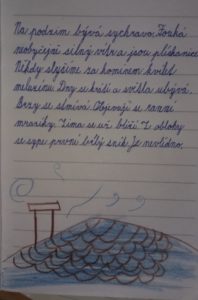 Na podzim bývá sychravo. Fouká
neobyčejně silný vítr a jsou plískanice.
Někdy slyšíme za komínem kvílet
meluzínu. Dny se krátí a světla ubývá.
Brzy se stmívá. Objevují se ranní
mrazíky. Zima se už blíží. Z oblohy
se sype první bílý sníh. Je nevlídno.